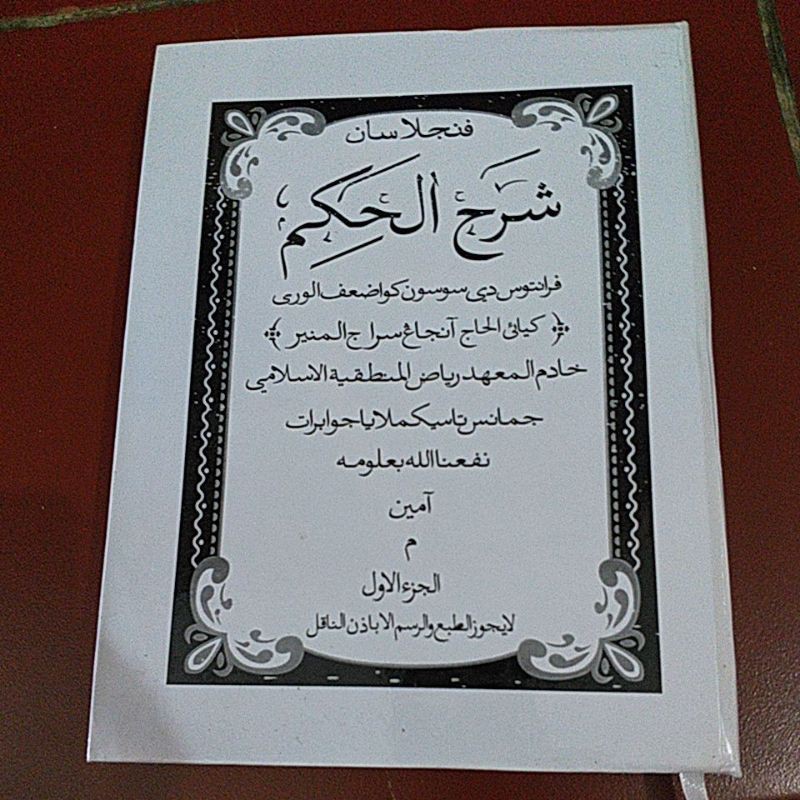 فنجلاسان
شَرَح الحِكَمِ
فرانتوس دي سوسون كو اضعف الورى
﴿ كيائي الحاج آنجاڠ سراج المنير ﴾
خادم المعهد رياض المنطقية الاسلامي
جمانس تاسيكملايا جوا برات
نفعنا الله بعلومه
آمين
م
الجزء الاول
لايجوز الطبع والرسم الا باذن الناقل